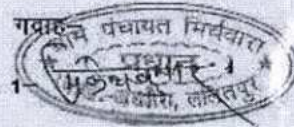 गवाह-
ग्राम पंचायत मिर्चवारा
प्रधान
1-
ललितपुर